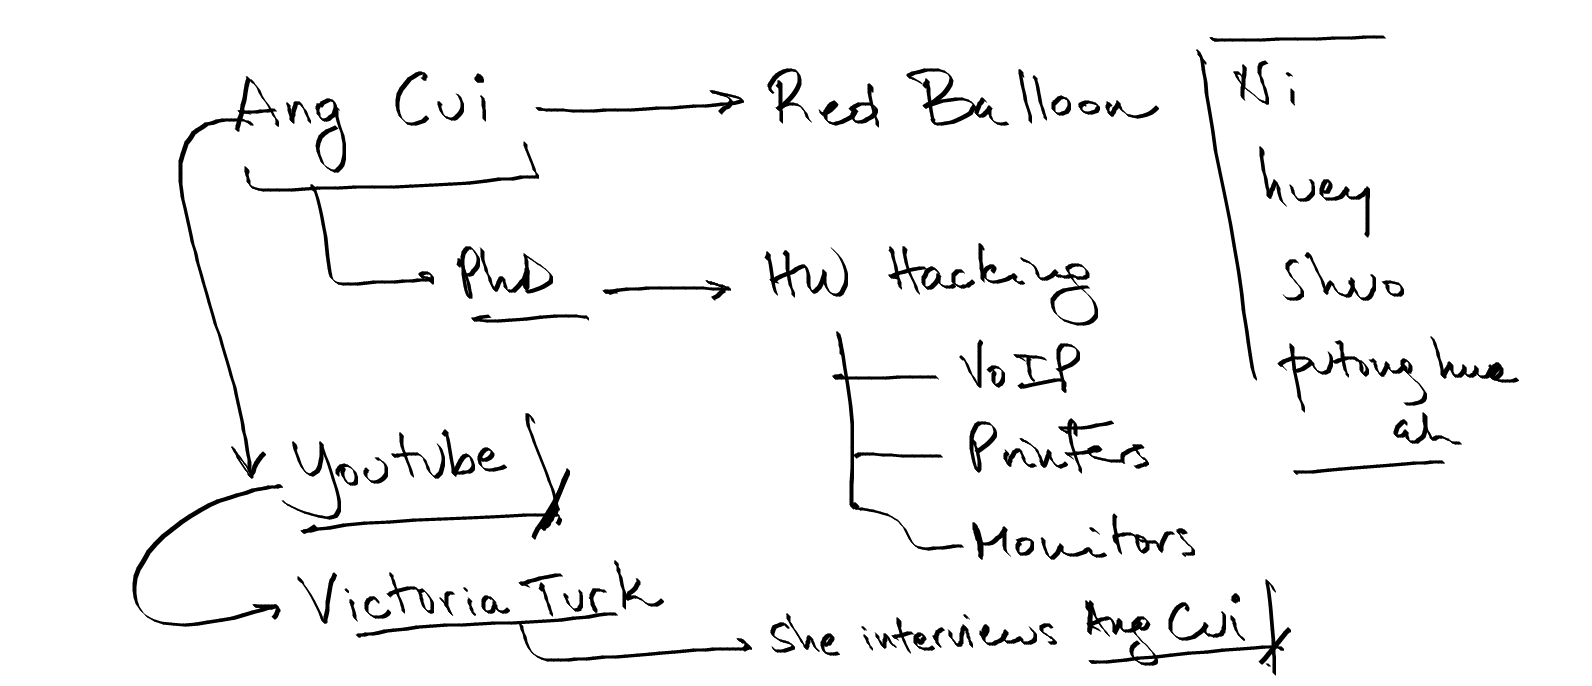 Ang Cui → Red Balloon
PhD → HW Hacking
VoIP
Printers
Monitors
Youtube
Victoria Turk
She interviews Ang Cui
Ni
huey
shuo
putong hua
ah